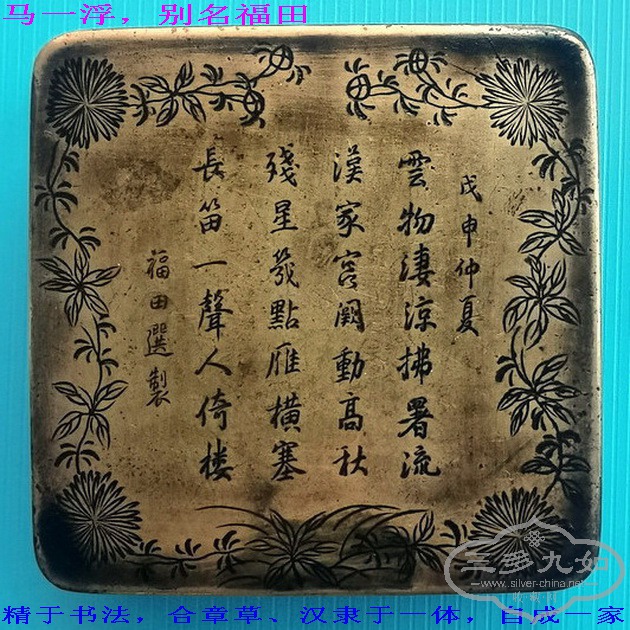 马一浮，别名福田
戊申仲夏
雲物淒涼拂署流
漢家宫闕動高秋
殘星幾點雁横塞
長笛一聲人倚楼
福田選製
三多九如
www.silver-china.net
精于书法，合章草、汉隶于一体，自成一家